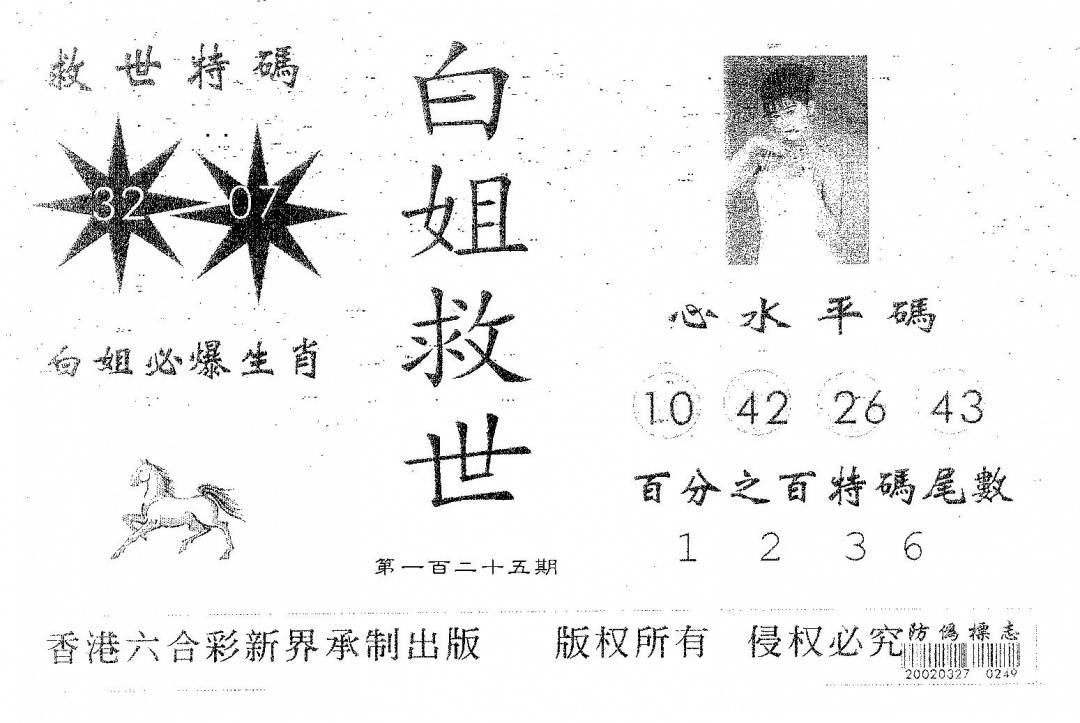 救世特碼
32 07
白姐必爆生肖
白姐救世
第一百二十五期
心水平碼
10 42 26 43
百分之百特碼尾數
1 2 3 6
香港六合彩新界承制出版 版权所有 侵权必究
防偽標志
20020327 0249